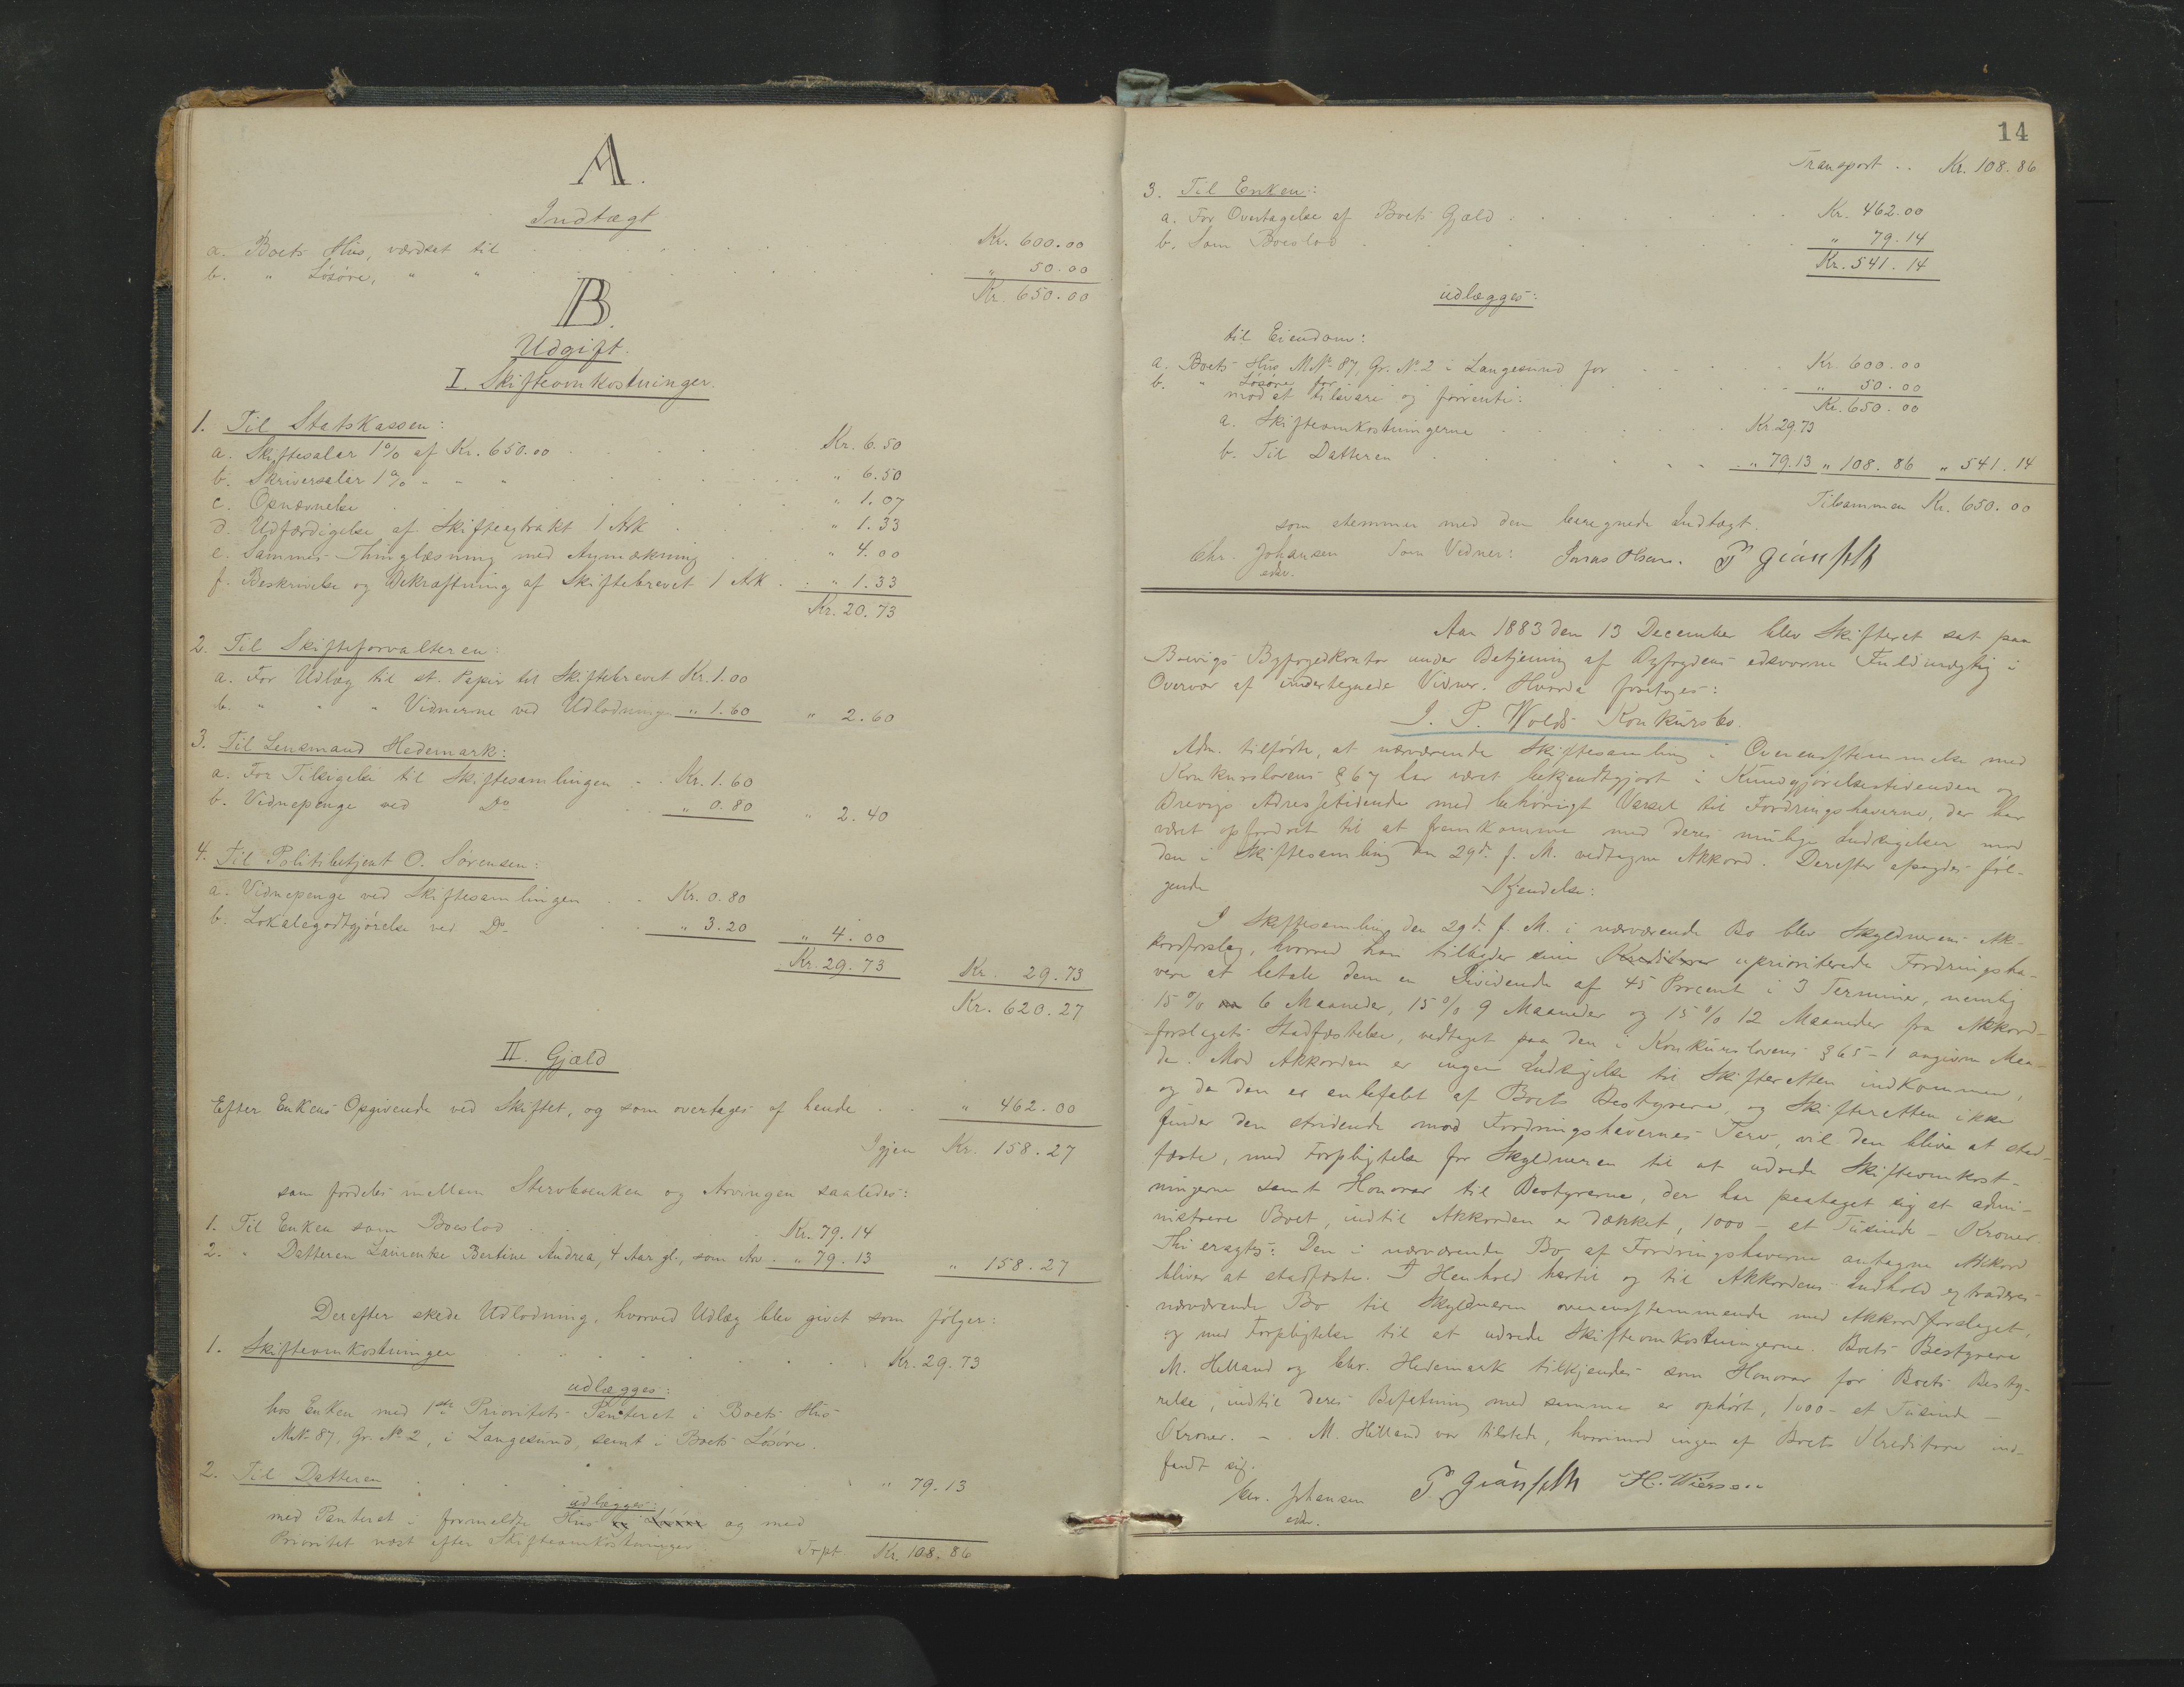 A.
Indtægt
a. Boets Hus, værdsat til . . . Kr. 600.00
b. " Løsøre, " " . . . " 50.00
Kr. 650.00
B.
Udgift.
I. Skifteomkostninger.
1. Til Statskassen:
a. Skiftesalær 1% af Kr. 650.00 . . . Kr. 6.50
b. Skriversalær 1% " " " . . . " 6.50
c. Opnævnelse . . . " 1.07
d. Udfærdigelse af Skifteextrakt 1 Ark . . . " 1.33
e. Sammes Thinglæsning med Anmærkning . . . " 4.00
f. Beskrivelse og Bekræftning af Skiftebrevet 1 Ark . . " 1.33
Kr. 20.73
2. Til Skifteforvalteren:
a. For Udlæg til st. Papir til Skiftebrevet Kr. 1.00
b. " " " Vidnerne ved Udlodningen " 1.60 " 2.60
3. Til Lensmand Hedemark:
a. For Tilsigelse til Skiftesamlingen . . Kr. 1.60
b. Vidnepenge ved Do . . " 0.80 " 2.40
4. Til Politibetjent O. Sørensen:
a. Vidnepenge ved Skiftesamlingen . . Kr. 0.80
b. Lokalegodtgjørelse ved Do . . " 3.20 " 4.00
Kr. 29.73 Kr. 29.73
Kr. 620.27
II. Gjæld
Efter Enkens Opgivende ved Skiftet, og som overtages af hende . . " 462.00
Igjen Kr. 158.27
som fordeles mellem Stervboenken og Arvingen saaledes:
1. Til Enken som Boeslod . . . Kr. 79.14
2. " Datteren Laurenke Bertine Andrea, 4 Aar gl., som Arv . " 79.13 " 158.27
Derefter skede Udlodning, hvorved Udlæg blev givet som følger:
1. Skifteomkostninger . . . Kr. 29.73
udlægges:
hos Enken med 1ste Prioritets Panteret i Boets Hus
M.No 87, Gr. No 2, i Langesund, samt i Boets Løsøre.
2. Til Datteren . . . " 79.13
udlægges:
med Panteret i formeldte Hus og med
Prioritet næst efter Skifteomkostninger Trpt. Kr. 108.86
14
Transport . . Kr. 108.86
3. Til Enken:
a. For Overtagelse af Boets Gjæld . . . Kr. 462.00
b. Som Boeslod . . . " 79.14
Kr. 541.14
udlægges:
til Eiendom:
a. Boets Hus M.No 87, Gr. No 2 i Langesund for . . . Kr. 600.00
b. " Løsøre for . . . " 50.00
mod at tilsvare og forrente: Kr. 650.00
a. Skifteomkostningerne . . . Kr. 29.73
b. Til Datteren . . . " 79.13 " 108.86 " 541.14
Tilsammen Kr. 650.00
som stemmer med den beregnede Indtægt.
Chr. Johansen Som Vidner: Jonas Olsen. P Giäusseth
edsv.
Aar 1883 den 13 December blev Skifteret sat paa
Brevigs Byfogedkontor under Betjening af Byfogdens edsvorne Fuldmægtig i
Overvær af undertegnede Vidner. Hvorda foretoges:
J. P. Wolds Konkursbo.
Adm. tilførte, at nærværende Skiftesamling i Overensstemmelse med
Konkurslovens § 67 har været bekjendtgjort i Kundgjørelsestidenden og
Brevigs Adressetidende med behørigt Varsel til Fordringshaverne, der har
været opfordret til at fremkomme med deres mulige Indsigelser mod
den i Skiftesamling den 29de f. M. vedtagne Akkord. Derefter afsagdes føl-
gende Kjendelse:
I Skiftesamling den 29de f. M. i nærværende Bo blev Skyldnerens Ak-
kordforslag, hvorved han tilbyder sine Kreditorer uprioriterede Fordringsha-
vere at betale dem en Dividende af 45 Procent i 3 Terminer, nemlig
15% 6 Maaneder, 15% 9 Maaneder og 15% 12 Maaneder fra Akkord-
forslagets Stadfæstelse, vedtaget paa den i Konkurslovens § 65-1 angivne Maa-
de. Mod Akkorden er ingen Indsigelse til Skifteretten indkommen,
og da den er anbefalet af Boets Bestyrere, og Skifteretten ikke
finder den stridende mod Fordringshavernes Tarv, vil den blive at stad-
fæste, med Forpligtelse for Skyldneren til at udrede Skifteomkost-
ningerne samt Honorar til Bestyrerne, der har paataget sig at admi-
nistrere Boet, indtil Akkorden er dækket, 1000 - et Tusinde - Kroner.
Thi eragtes: Den i nærværende Bo af Fordringshaverne antagne Akkord
bliver at stadfæste. I Henhold hertil og til Akkordens Indhold extraderes
nærværende Bo til Skyldneren overensstemmende med Akkordforslaget,
og med Forpligtelse til at udrede Skifteomkostningerne. Boets Bestyrere
M. Helland og Chr. Hedemark tilkjendes som Honorar for Boets Besty-
relse, indtil deres Befatning med samme er ophørt, 1000 - et Tusinde -
Kroner. - M. Helland var tilstede, hvorimod ingen af Boets Kreditorer ind-
fandt sig.
Chr. Johansen P. Giäusseth H. Wiersen
edsv.